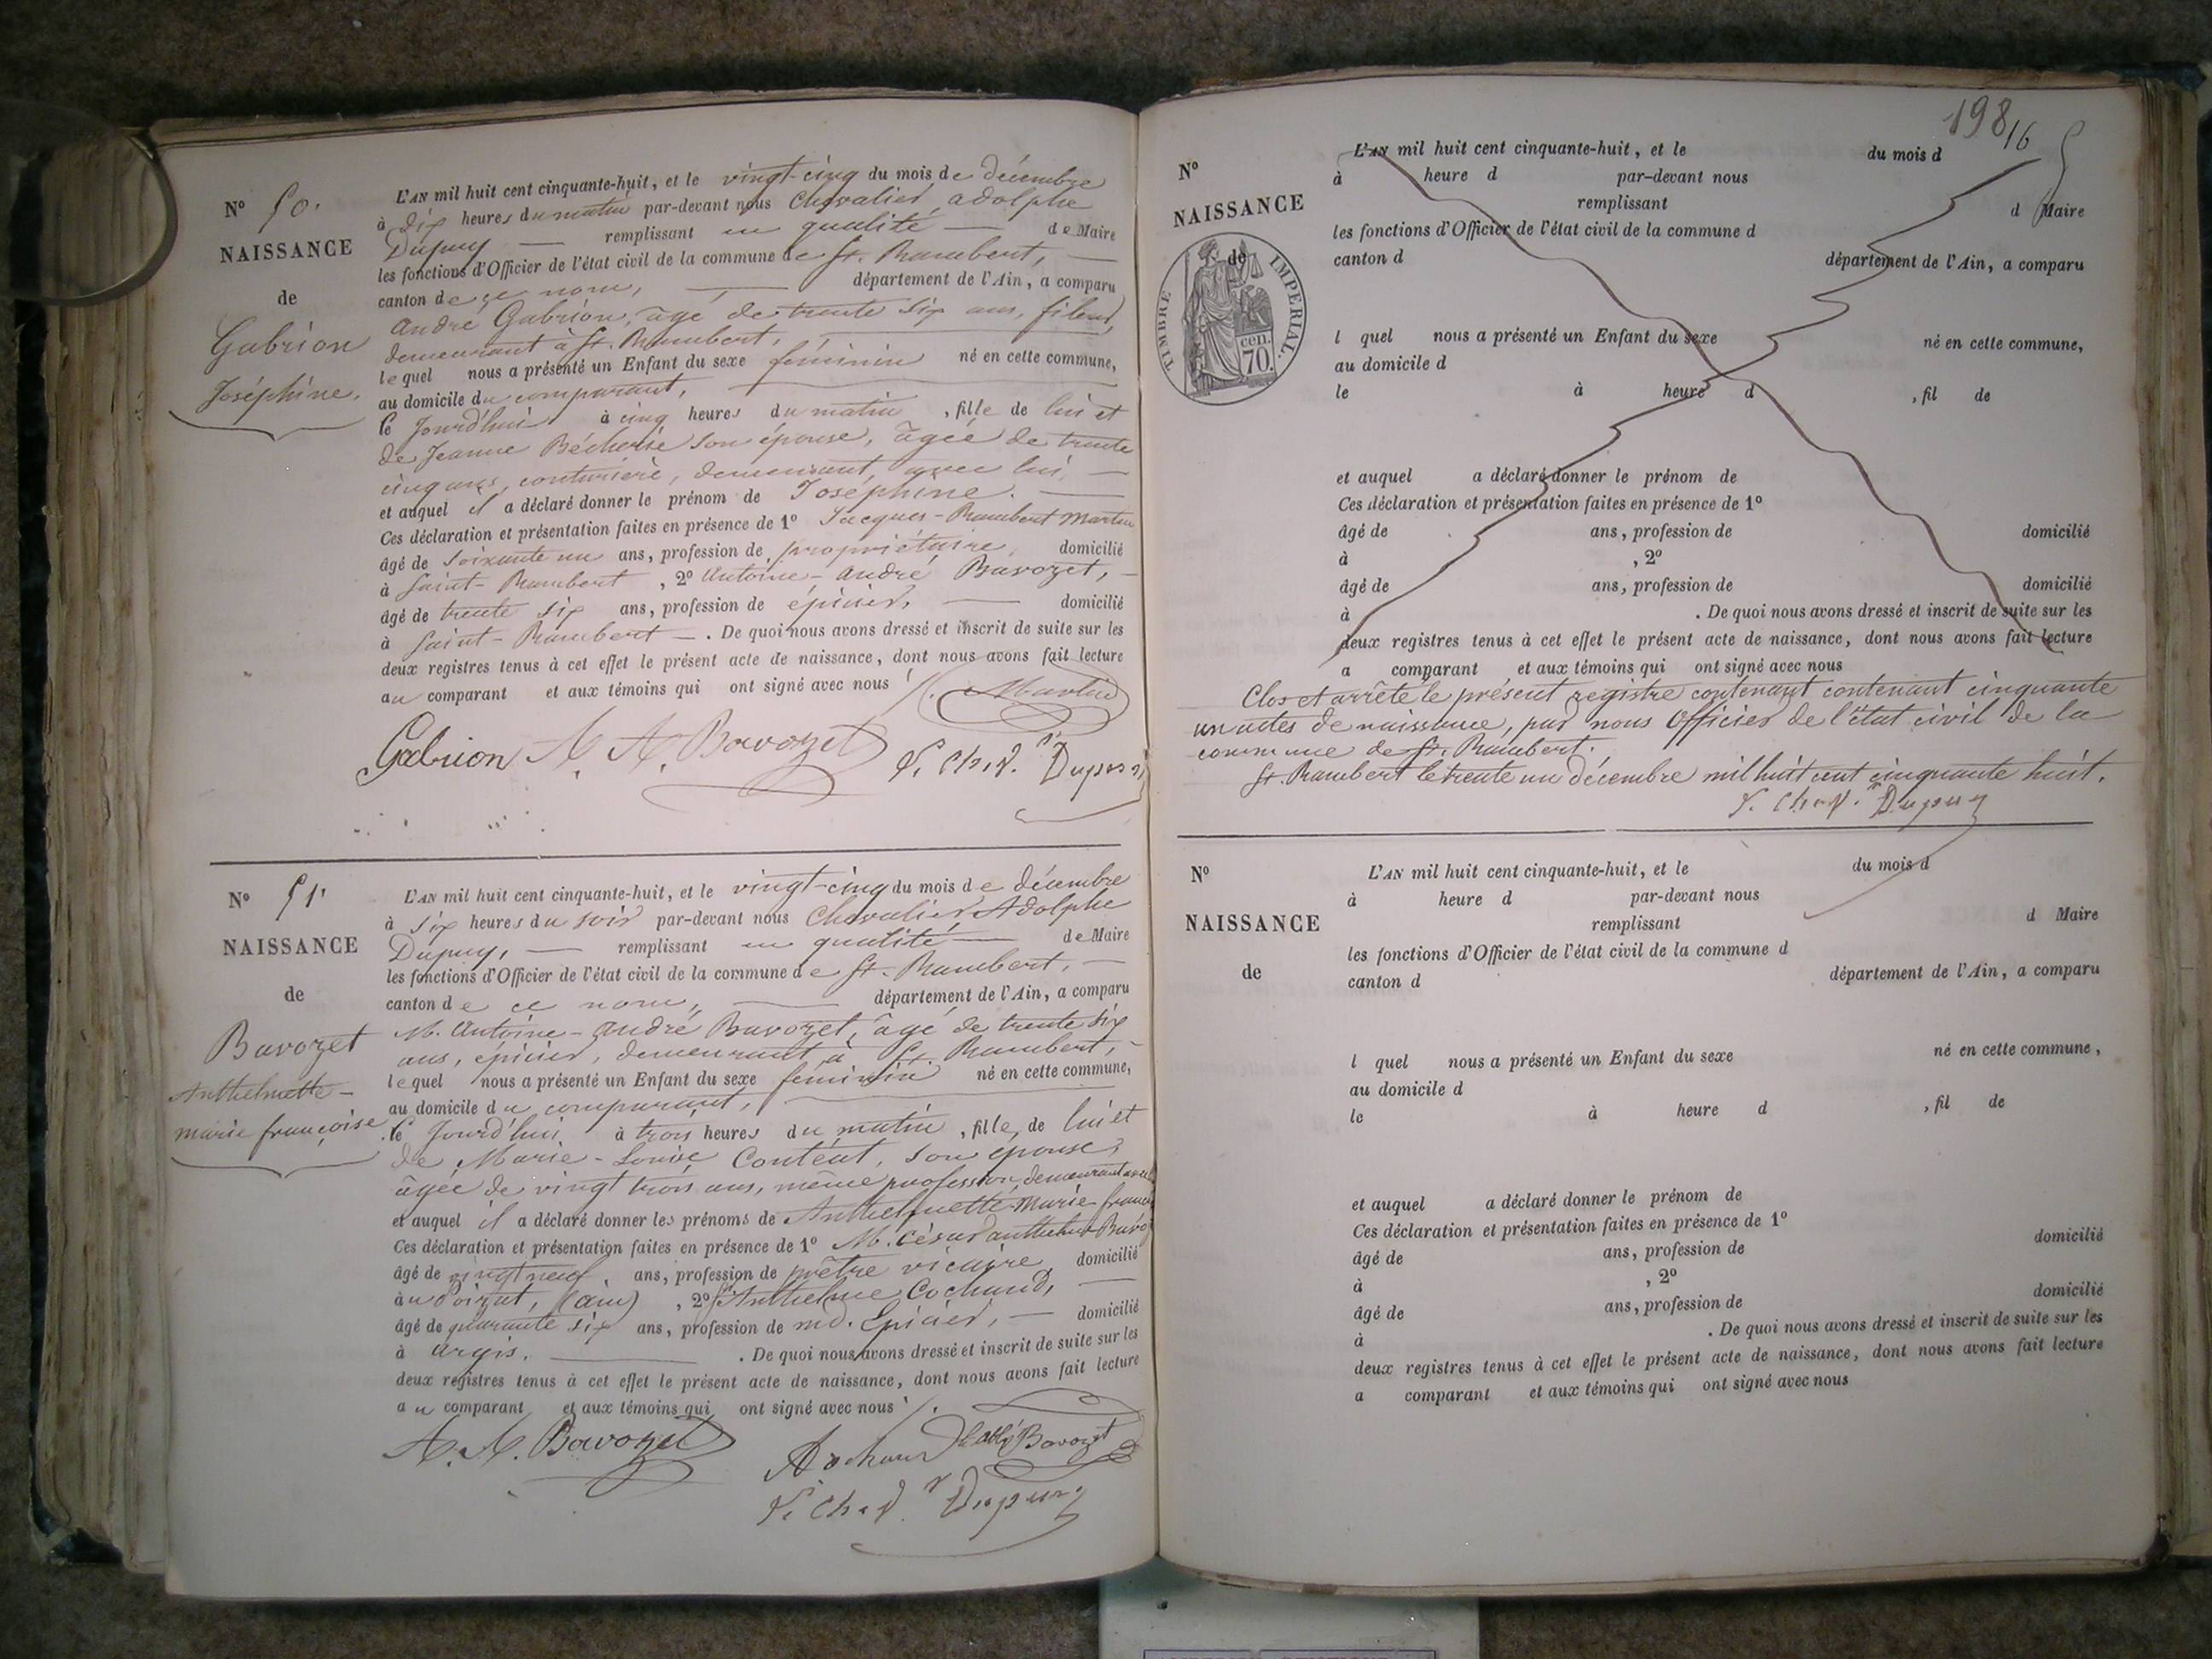 N° 50.
NAISSANCE
de
Gabrion
Joséphine.
L'AN mil huit cent cinquante-huit, et le vingt-cinq du mois de décembre
à dix heures du matin par-devant nous Chevalier Adolphe
Dupuy — remplissant en qualité — de Maire
les fonctions d'Officier de l'état civil de la commune de St. Rambert, —
canton de ce nom, — département de l'Ain, a comparu
André Gabrion, âgé de trente six ans, fileur,
demeurant à St. Rambert,
lequel nous a présenté un Enfant du sexe féminin né en cette commune,
au domicile du comparant,
le Jourd'hui à cinq heures du matin, fille de lui et
de Jeanne son épouse, âgée de trente
cinq ans, couturière, demeurant avec lui, —
et auquel il a déclaré donner le prénom de Joséphine. —
Ces déclaration et présentation faites en présence de 1° Jacques-Rambert Martin
âgé de soixante un ans, profession de propriétaire, domicilié
à Saint-Rambert, 2° Antoine-André Bavozet, —
âgé de trente six ans, profession de épicier, — domicilié
à Saint-Rambert —. De quoi nous avons dressé et inscrit de suite sur les
deux registres tenus à cet effet le présent acte de naissance, dont nous avons fait lecture
au comparant et aux témoins qui ont signé avec nous
Martin
Gabrion A. A. Bavozet Dupuy
N° 51.
NAISSANCE
de
Bavozet
Anthelmette-
marie françoise.
L'AN mil huit cent cinquante-huit, et le vingt-cinq du mois de décembre
à six heures du soir par-devant nous Chevalier Adolphe
Dupuy, — remplissant en qualité — de Maire
les fonctions d'Officier de l'état civil de la commune de St. Rambert, —
canton de ce nom, — département de l'Ain, a comparu
M. Antoine-André Bavozet, âgé de trente six
ans, épicier, demeurant à St. Rambert, —
lequel nous a présenté un Enfant du sexe féminin né en cette commune,
au domicile du comparant,
le Jourd'hui à trois heures du matin, fille de lui et
de Marie-Louise Content, son épouse,
âgée de vingt trois ans, même profession, demeurant avec
et auquel il a déclaré donner les prénoms de Anthelmette-Marie-
Ces déclaration et présentation faites en présence de 1° M. César anthelme
âgé de vingt neuf ans, profession de prêtre vicaire domicilié
au Poizat, (ain), 2° Anthelme Cochaud, —
âgé de quarante six ans, profession de md. Epicier, — domicilié
à argis. — . De quoi nous avons dressé et inscrit de suite sur les
deux registres tenus à cet effet le présent acte de naissance, dont nous avons fait lecture
au comparant et aux témoins qui ont signé avec nous
A. A. Bavozet l'abbé Bavozet
Dupuy
198
16
N°
NAISSANCE
de
TIMBRE IMPERIAL.
cen.
70.
L'AN mil huit cent cinquante-huit, et le du mois d
à heure d par-devant nous
remplissant d Maire
les fonctions d'Officier de l'état civil de la commune d
canton d département de l'Ain, a comparu
l quel nous a présenté un Enfant du sexe né en cette commune,
au domicile d
le à heure d , fil de
et auquel a déclaré donner le prénom de
Ces déclaration et présentation faites en présence de 1°
âgé de ans, profession de domicilié
à , 2°
âgé de ans, profession de domicilié
à . De quoi nous avons dressé et inscrit de suite sur les
deux registres tenus à cet effet le présent acte de naissance, dont nous avons fait lecture
a comparant et aux témoins qui ont signé avec nous
Clos et arrêté le présent registre contenant contenant cinquante
un actes de naissance, par nous Officier de l'état civil de la
commune de St. Rambert.
St. Rambert le trente un décembre mil huit cent cinquante huit.
Dupuy
N°
NAISSANCE
de
L'AN mil huit cent cinquante-huit, et le du mois d
à heure d par-devant nous
remplissant d Maire
les fonctions d'Officier de l'état civil de la commune d
canton d département de l'Ain, a comparu
l quel nous a présenté un Enfant du sexe né en cette commune,
au domicile d
le à heure d , fil de
et auquel a déclaré donner le prénom de
Ces déclaration et présentation faites en présence de 1°
âgé de ans, profession de domicilié
à , 2°
âgé de ans, profession de domicilié
à . De quoi nous avons dressé et inscrit de suite sur les
deux registres tenus à cet effet le présent acte de naissance, dont nous avons fait lecture
a comparant et aux témoins qui ont signé avec nous